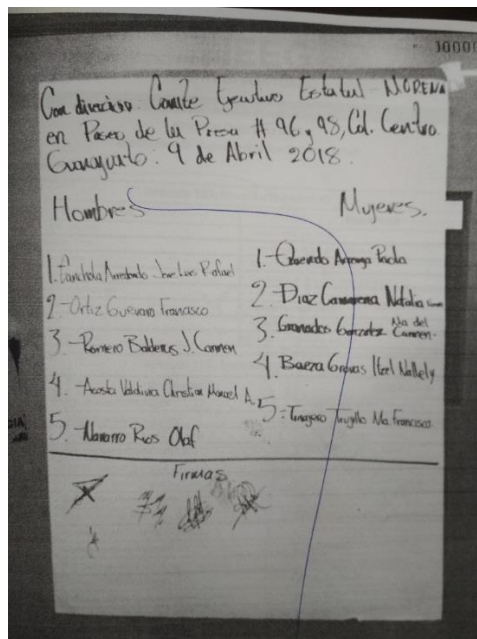 10000
Con dirección: Comite Ejecutivo Estatal MORENA
en Paseo de la Presa # 96 y 98, Col. Centro
Guanajuato. 9 de Abril 2018.
Hombres
Mujeres.
1. Arredondo Jose Luis Rafael
2.- Ortiz Guevara Francisco
3.- Romero Balderas J. Carmen
4. Acosta Valdivia Christian Manuel A.
5. Navarro Rios Olaf
1.- Arteaga Paola
2. Diaz Camarena Natalia
3. Granados Gonzalez Ma del Carmen.
4. Baeza Itzel Nallely
5.- Tinajero Trujillo Ma Francisca.
Firmas